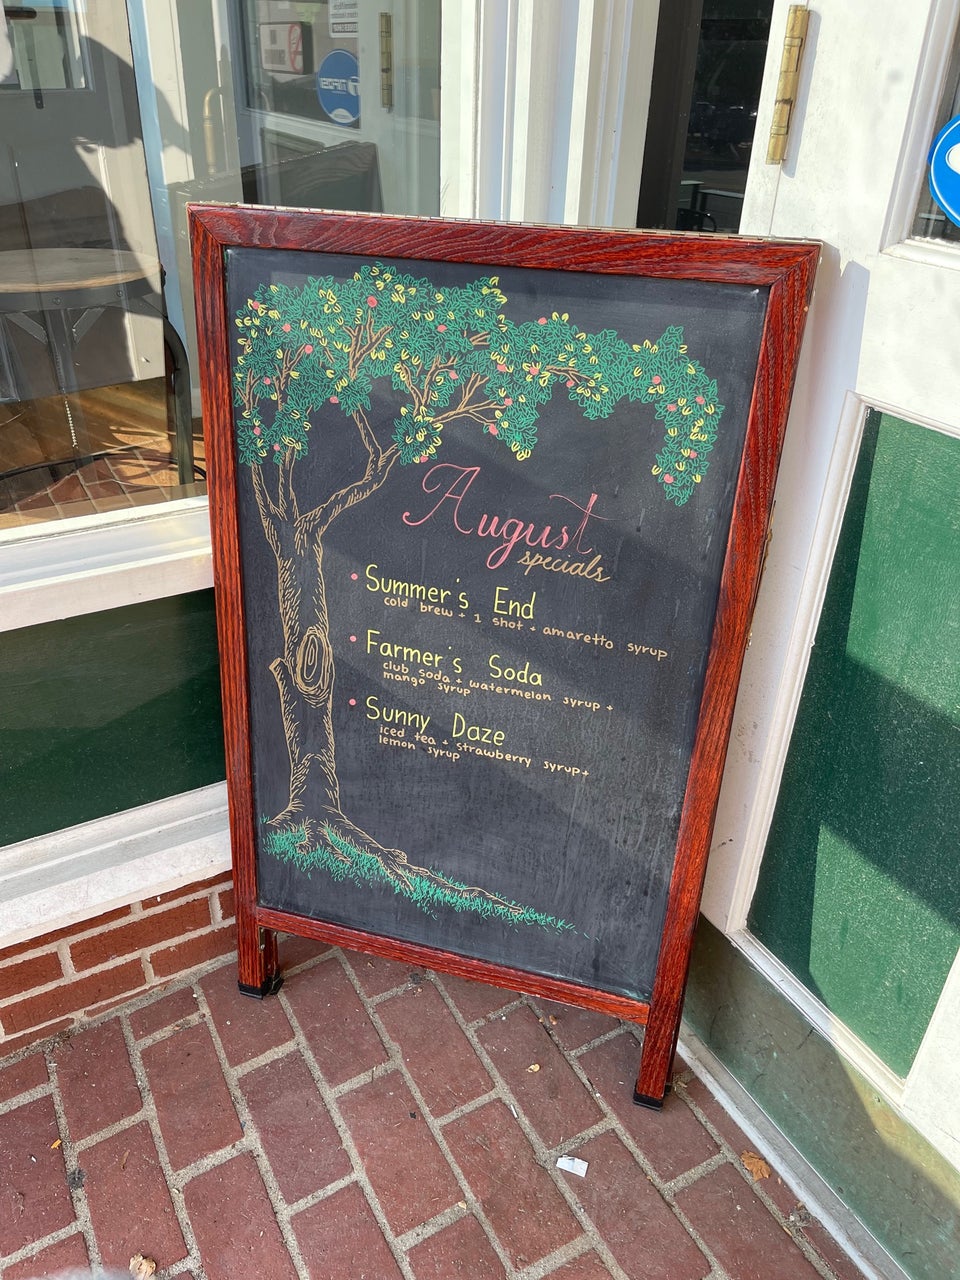 August
specials
• Summer's End
cold brew + 1 shot + amaretto syrup
• Farmer's Soda
club soda + watermelon syrup +
mango syrup
• Sunny Daze
iced tea + strawberry syrup +
lemon syrup